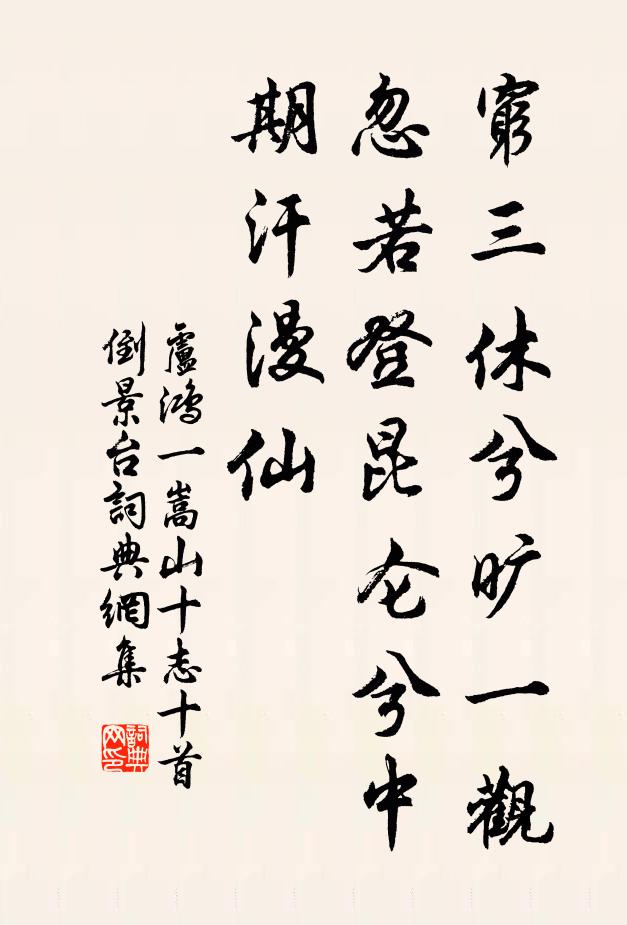 窮三休兮旷一觀
忽若登昆仑兮中
期汗漫仙
盧鴻一嵩山十志十首
倒景台詞典網集
詞典网印